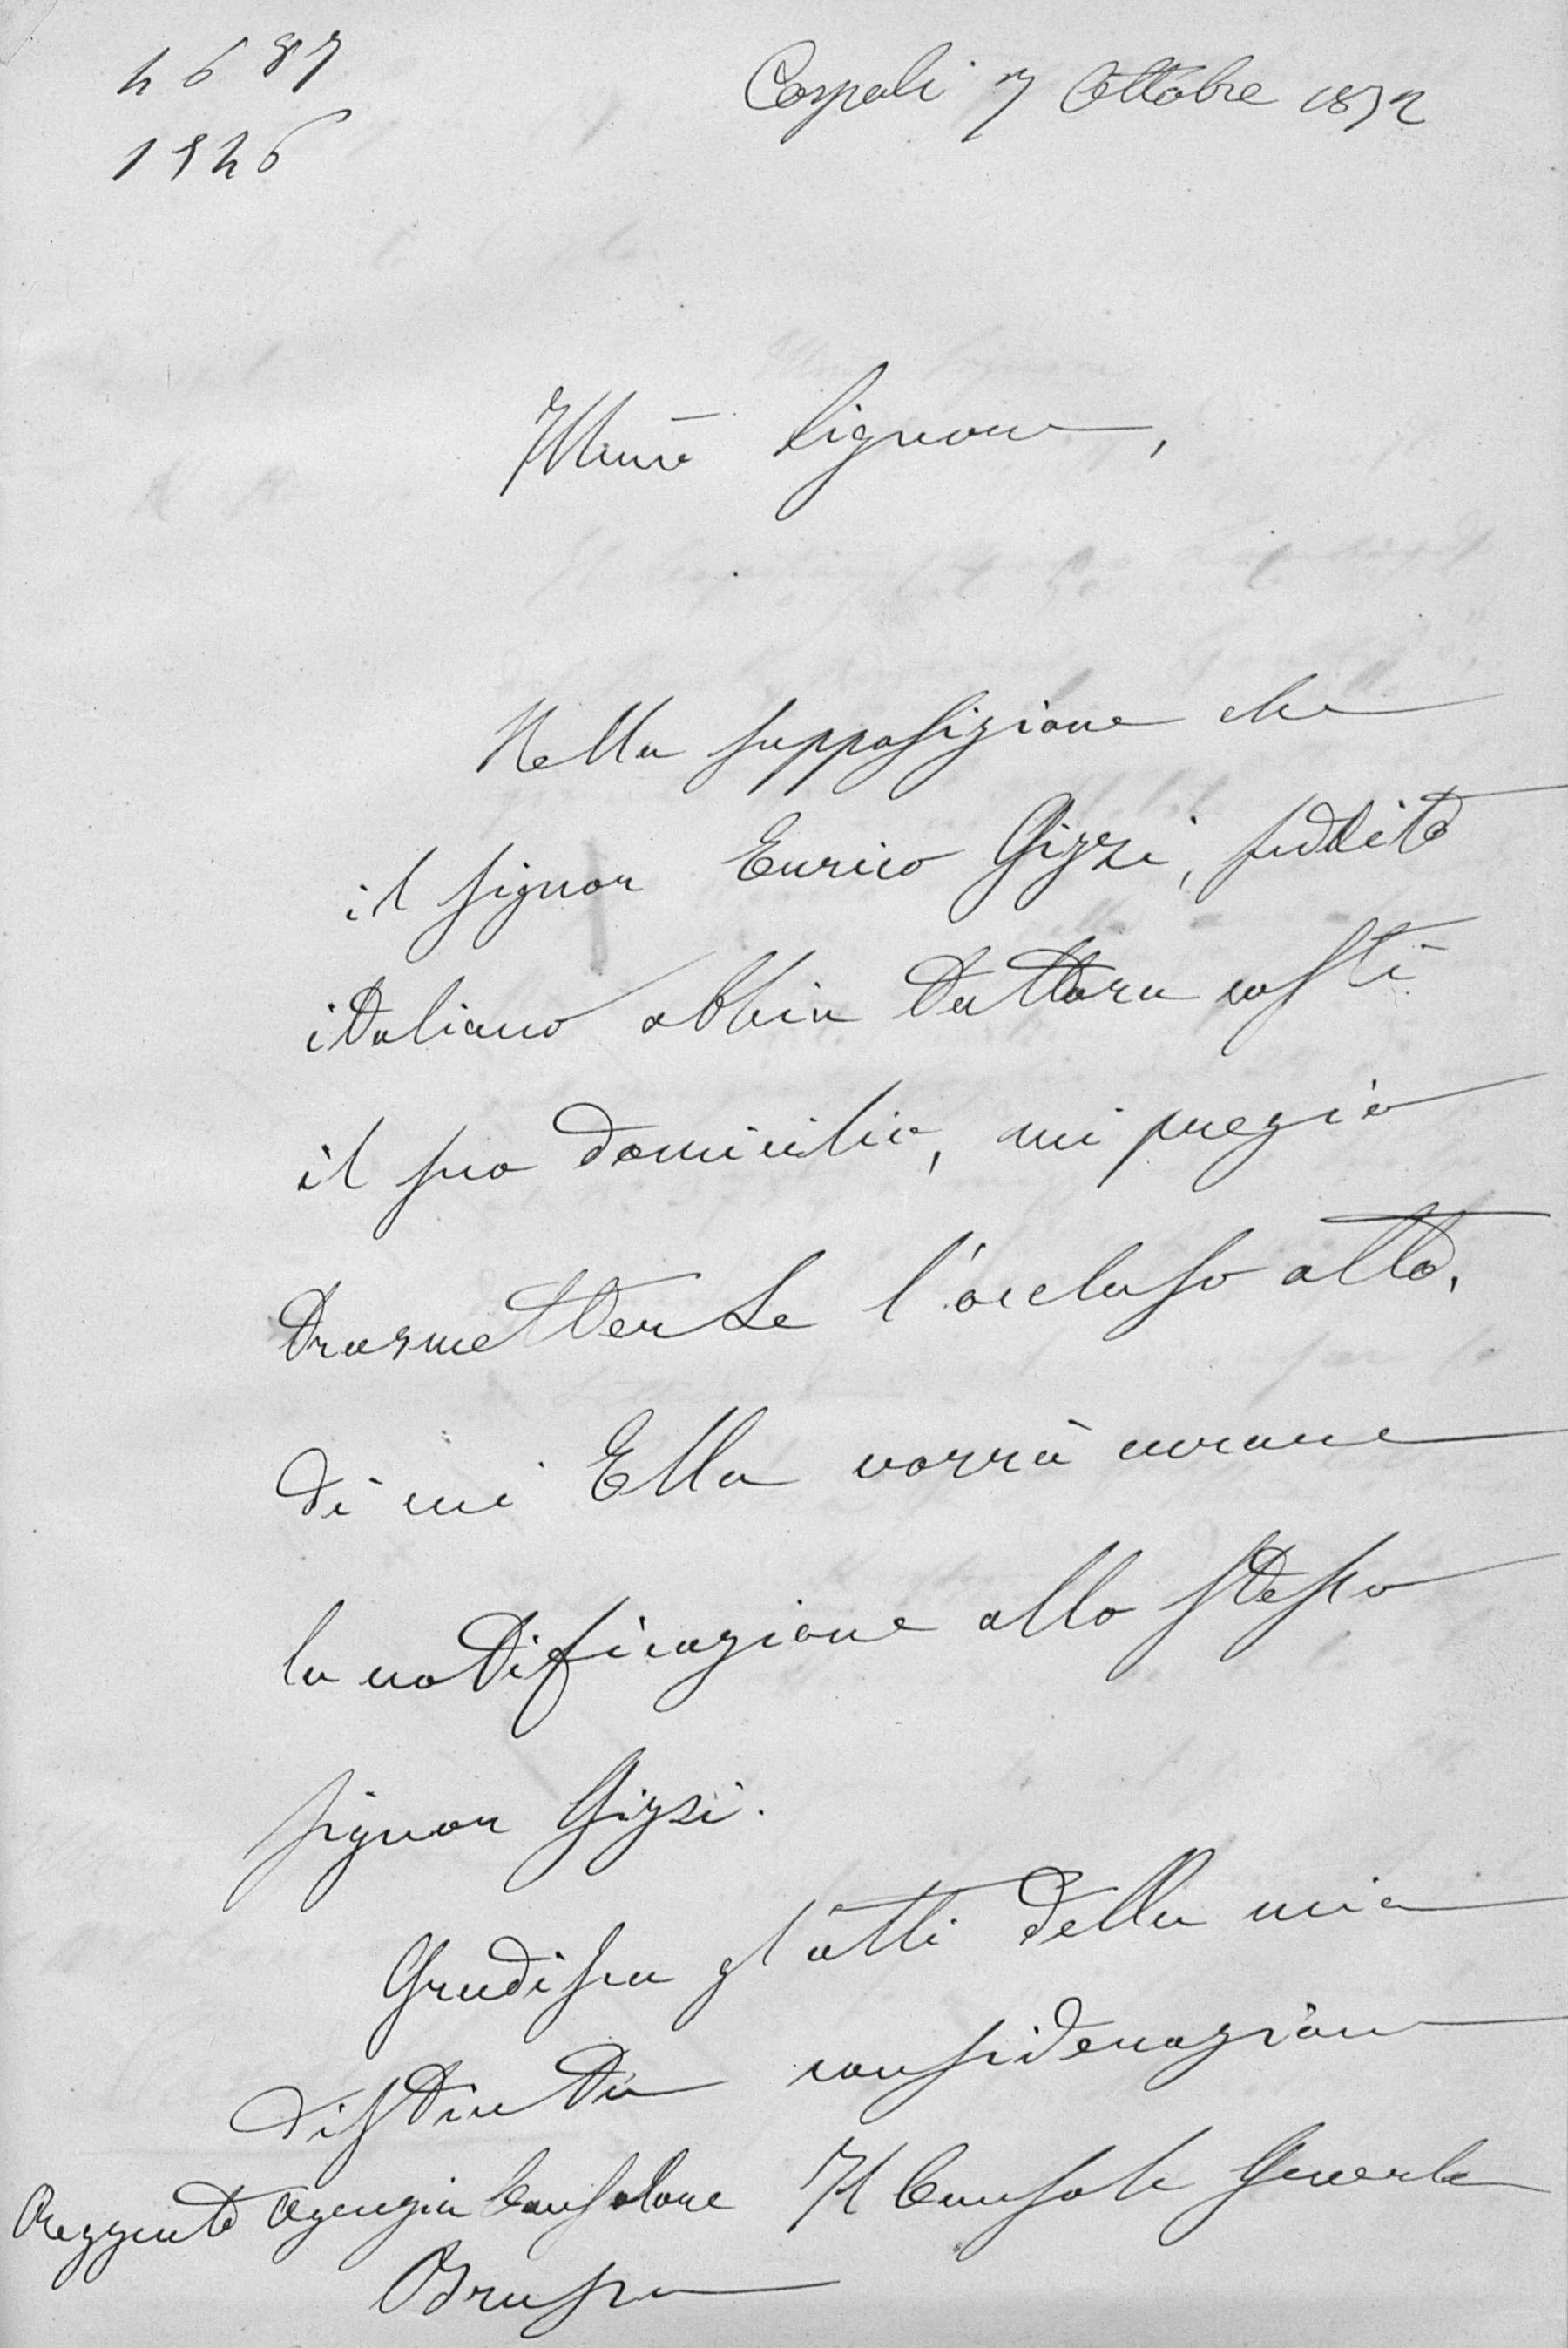 4687
1526
Cospoli 7 Ottobre 1872
Illmo Signore,
Nella supposizione che
il signor Enrico Gizzi, suddito
italiano abbia tuttora costì
il suo domicilio, mi pregio
trasmetterLe l'accluso atto,
di cui Ella vorrà curare
la notificazione allo stesso
signor Gizzi.
Gradisca gl'atti della mia
distinta considerazione
Reggente Agenzia Consolare Il Console Generale
Brussa